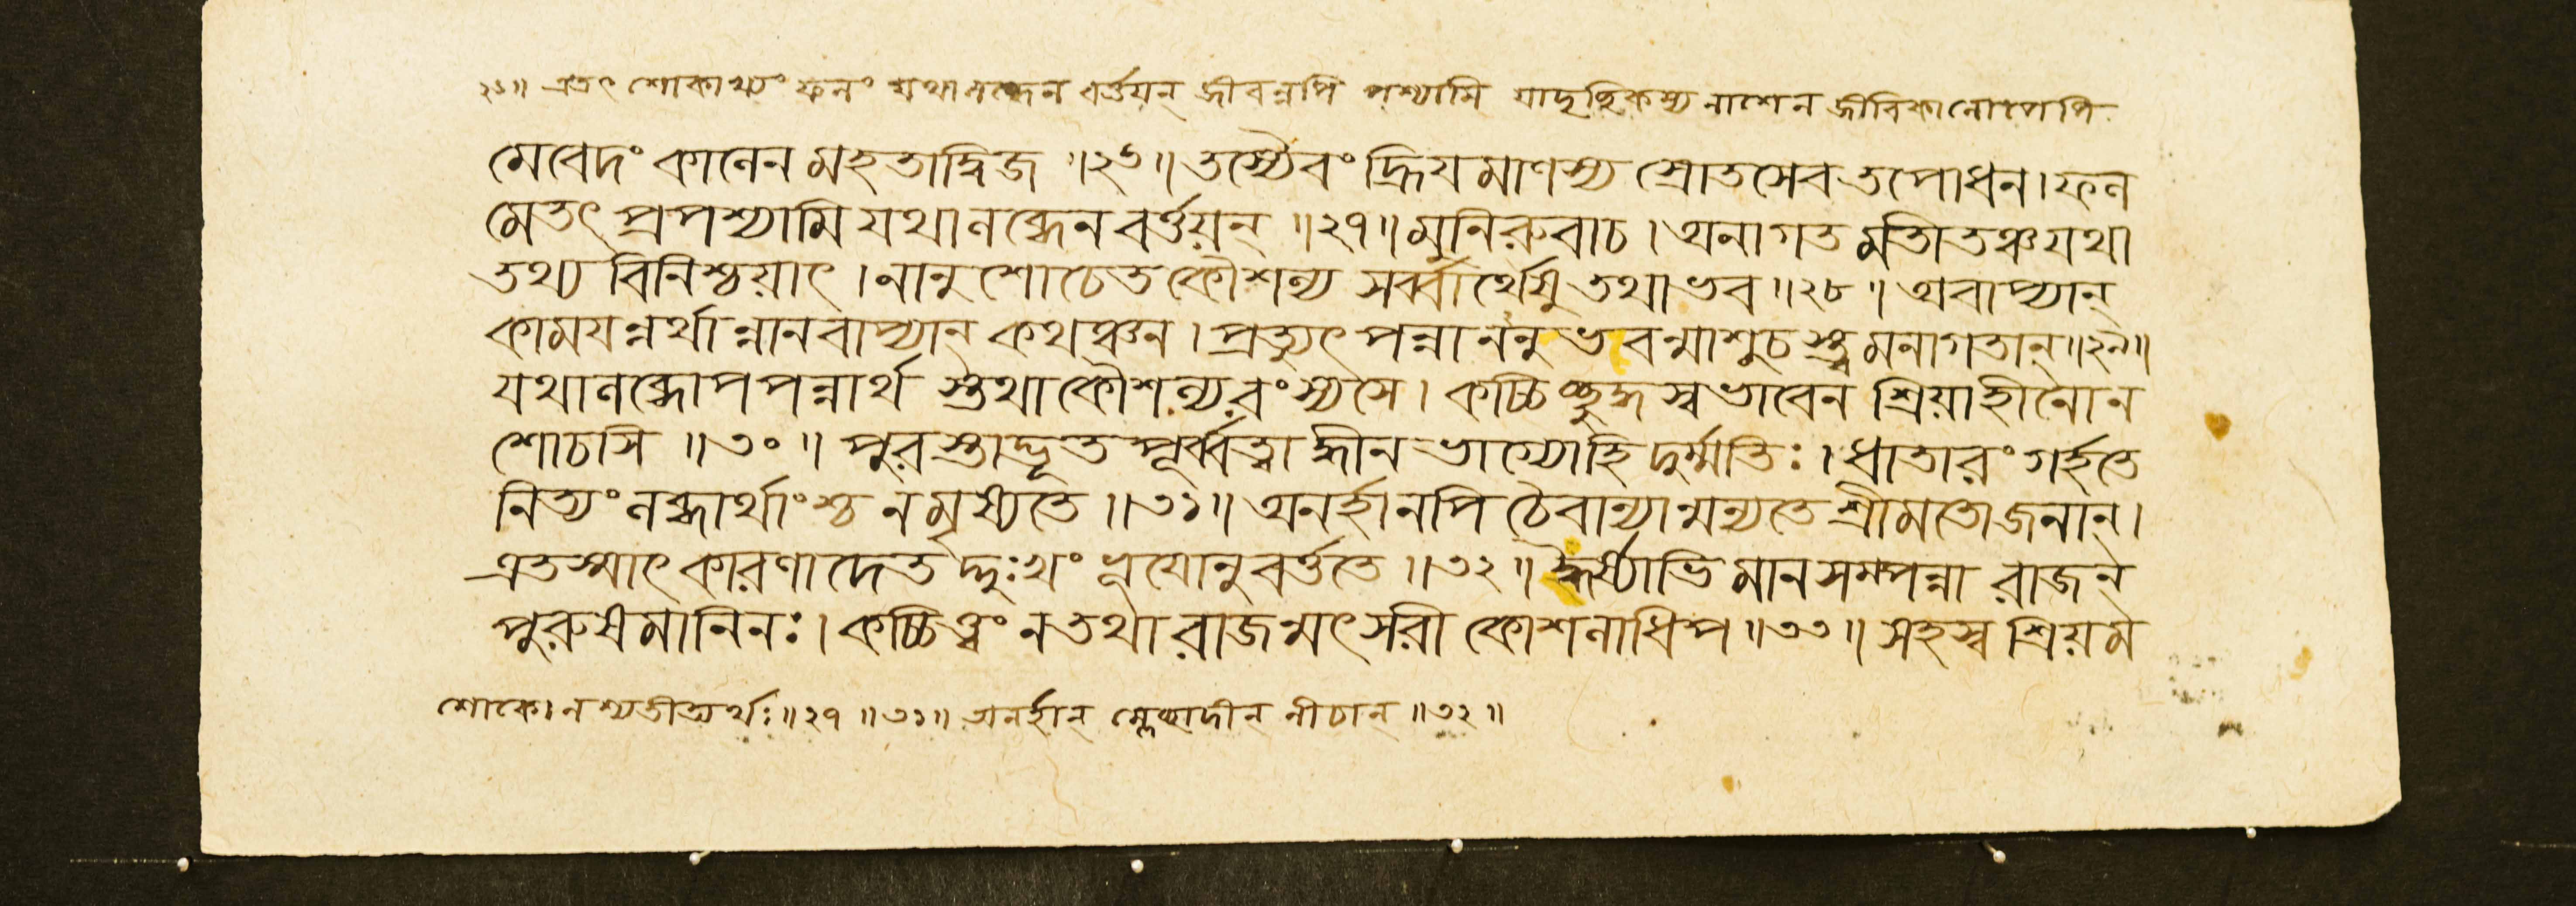 ২১॥ এতৎ শোকাখ্যং ফলং যথালব্ধেন বর্ত্তয়ন্ জীবন্নপি পশ্যামি যাদৃচ্ছিকস্য নাশেন জীবিকালোপেপি
মেবেদং কালেন মহতাদ্বিজ ॥২৬॥ তস্যৈবং হ্রিয়মাণস্য স্রোতসেব তপোধন। ফল
মেতৎ প্রপশ্যামি যথালব্ধেন বর্ত্তয়ন্ ॥২৭॥ মুনিরুবাচ। অনাগতমতীতঞ্চ যথা
তথ্য বিনিশ্চয়াৎ। নানুশোচেত কৌশল্য সর্ব্বার্থেষু তথা ভব ॥২৮॥ অবাপ্যান্
কাময়ন্নর্থান্নানবাপ্যান্ কথঞ্চন। প্রত্যুৎপন্নাননুভবন্মাশুচস্ত্বমনাগতান্ ॥২৯॥
যথালব্ধোপপন্নার্থ স্তথা কৌশল্য রংস্যসে। কচ্চিচ্ছুদ্ধস্বভাবেন শ্রিয়াহীনো ন
শোচসি ॥৩০॥ পুরস্তাদ্ভূতপূর্ব্বত্বাদ্ধীনভাগ্যোহি দুর্ম্মতিঃ। ধাতারং গর্হতে
নিত্যং লব্ধার্থাংশ্চ ন মৃষ্যতে ॥৩১॥ অনর্হানপি চৈবান্যান্মন্যতে শ্রীমতোজনান্।
এতস্মাৎ কারণাদেতদ্দুঃখং ভূয়োনুবর্ত্ততে ॥৩২॥ ঈর্ষ্যাভিমানসম্পন্না রাজন্
পুরুষমানিনঃ। কচ্চিত্ত্বং ন তথা রাজন্মৎসরী কোশলাধিপ ॥৩৩॥ সহস্ব শ্রিয়ম
শোকো নশ্যতীত্যর্থঃ ॥২৭॥৩১॥ অনর্হান্ ম্লেচ্ছাদীন্ নীচান্ ॥৩২॥